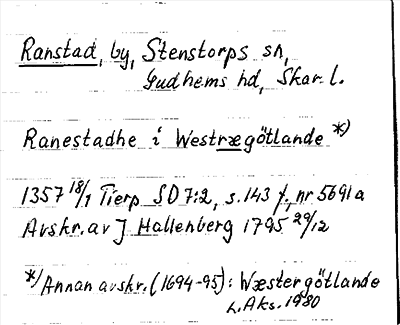 Ranstad, by, Stenstorps sn,
Gudhems hd, Skar. l.
Ranestadhe i Westrægötlande *)
1357 18/1 Tierp SD 7:2, s. 143 f., nr 5691a
Avskr. av J Hallenberg 1795 29/12
*) Annan avskr. (1694-95): Wæstergötlande
L. Aks. 1980